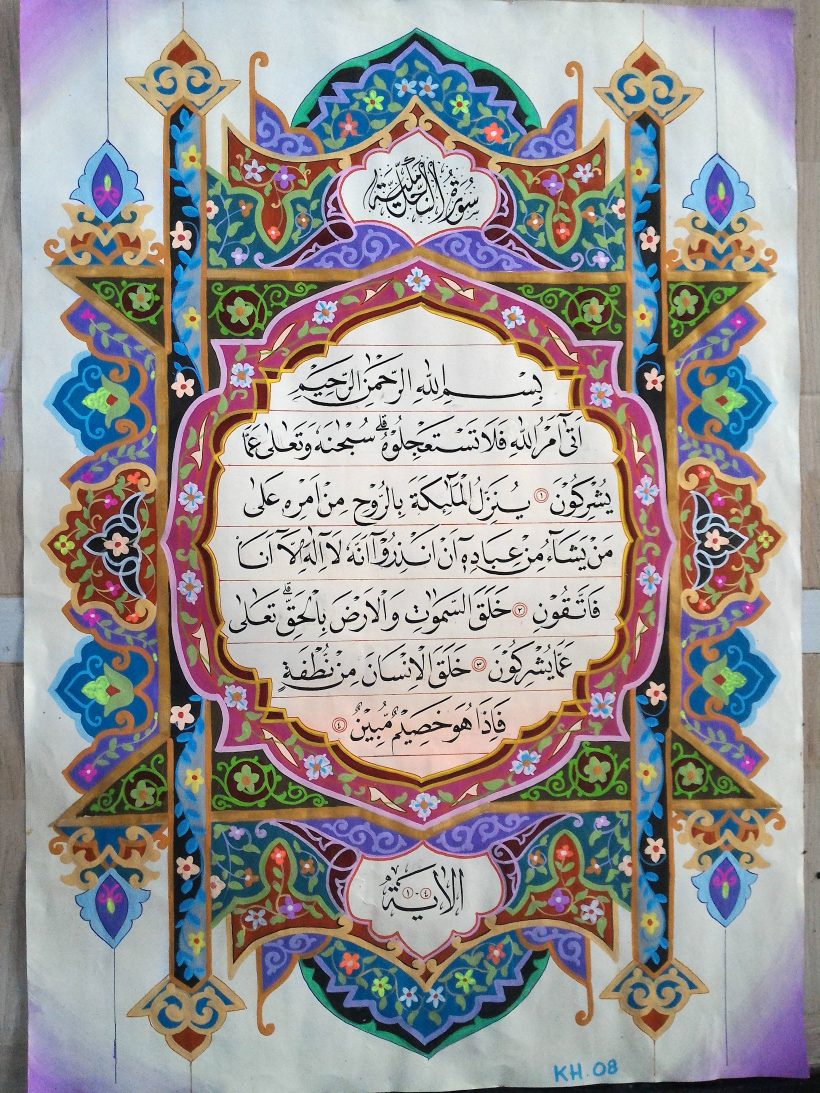 سُوْرَةُ النَّحْلِ مَكِّيَّة
بِسْمِ اللهِ الرَّحْمٰنِ الرَّحِيْمِ
اَتٰىٓ اَمْرُ اللهِ فَلَا تَسْتَعْجِلُوْهُ ۗ سُبْحٰنَهٗ وَتَعٰلٰى عَمَّا
يُشْرِكُوْنَ ١ يُنَزِّلُ الْمَلٰۤىِٕكَةَ بِالرُّوْحِ مِنْ اَمْرِهٖ عَلٰى
مَنْ يَّشَاۤءُ مِنْ عِبَادِهٖٓ اَنْ اَنْذِرُوْٓا اَنَّهٗ لَآ اِلٰهَ اِلَّآ اَنَا
فَاتَّقُوْنِ ٢ خَلَقَ السَّمٰوٰتِ وَالْاَرْضَ بِالْحَقِّ ۗ تَعٰلٰى
عَمَّا يُشْرِكُوْنَ ٣ خَلَقَ الْاِنْسَانَ مِنْ نُّطْفَةٍ
فَاِذَا هُوَ خَصِيْمٌ مُّبِيْنٌ ٤
الاٰية ١-٤
KH. 08